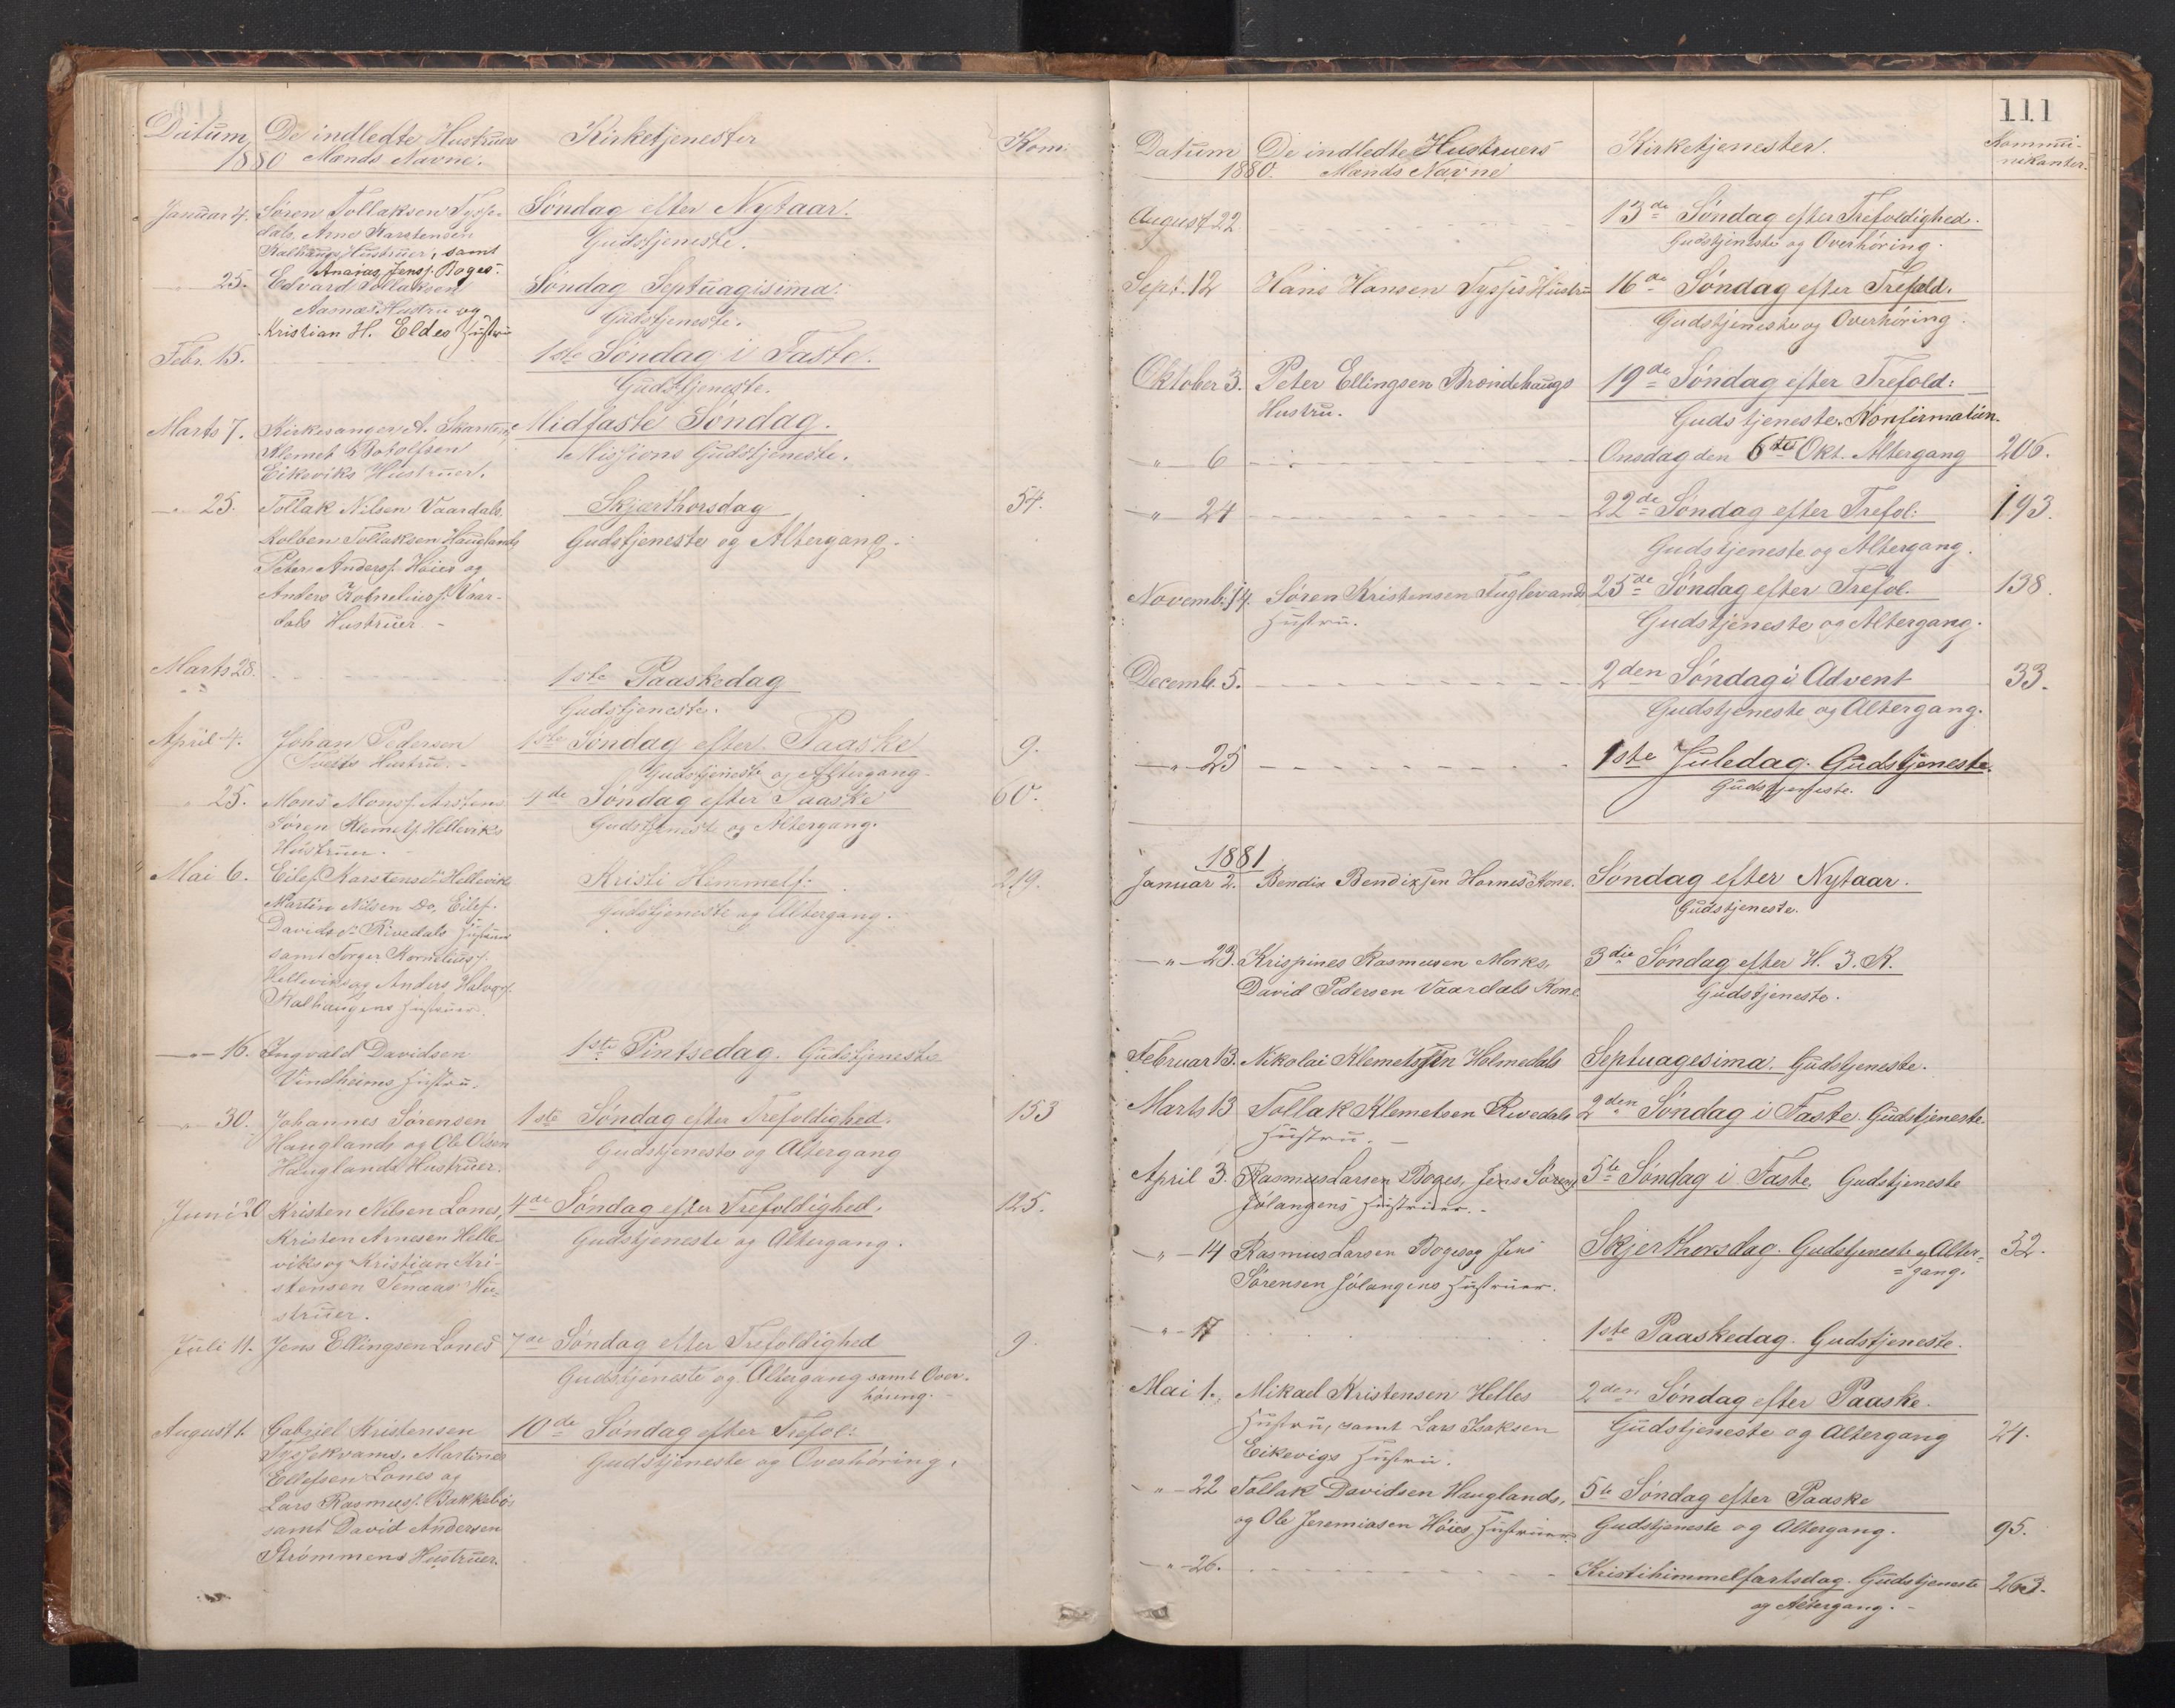 Datum 1880
De indledte Hustruers
Mænds Navne.
Kirketjenester
Kom:
Januar 4. Søren Tollaksen Tysse- Søndag efter Nytaar.
dals, Arne Karstensen Gudstjeneste.
Kalhaugs Hustruer, samt
Ananias Jensf. Boges.
" 25. Edvard Tollaksen Søndag Septuagisima.
Aasnæs Hustru og Gudstjeneste.
Kristian H. Eldes Hustru
Febr. 15. 1ste Søndag i Faste.
Gudstjeneste.
Marts 7. Kirkesanger A. Skarsten, Midfaste Søndag.
Klemet Botolfsen Missions Gudstjeneste.
Eikeviks Hustruer.
" 25. Tollak Nilsen Vaardals Skjærthorsdag 54.
Kolben Tollaksen Hauglands Gudstjeneste og Altergang.
Peter Andersf. Høies og
Anders Kornelius f. Vaar-
dals Hustruer -
Marts 28. 1ste Paaskedag
Gudstjeneste.
April 4. Johan Pedersen 1ste Søndag efter Paaske 9.
Hustru. Gudstjeneste og Altergang.
" 25. Mons Monsf. 4de Søndag efter Paaske 60.
Søren Klemetf. Helleviks Gudstjeneste og Altergang.
Hustruer.
Mai 6. Eilef Karstensen Hellevik Kristi Himmelf: 219.
Martin Nilsen Do, Eilef Gudstjeneste og Altergang.
Davids. Rivedals Hustruer
samt Torger Kornelius f.
Hellevik og Anders Halvorf.
Kalhaugens Hustruer.
" 16. Ingvald Davidsen 1ste Pintsedag. Gudstjeneste
Vindheims Hustru.
" 30. Johannes Sørensen 1ste Søndag efter Trefoldighed. 153
Hauglands og Ole Olsen Gudstjeneste og Altergang
Hauglands Hustruer.
Juni 20 Kristen Nilsen Lones, 4de Søndag efter Trefoldighed. 125.
Kristen Arnesen Helle- Gudstjeneste og Altergang.
viks og Kristian Kri-
stensen Tenaas Hu-
struer.
Juli 11. Jens Ellingsen Lones 7de Søndag efter Trefoldighed 9.
Gudstjeneste og Altergang samt Over-
høring.
August 1. Gabrjel Kristensen 10de Søndag efter Trefol:
Tyssekvams, Martines Gudstjeneste og Overhøring.
Ellefsen Lones og
Lars Rasmusf. Bakkebø
samt David Andersen
Strømmens Hustruer.
111
Datum 1880.
De indledte Hustruers
Mænds Navne
Kirketjenester.
Kommu-
nikanter.
August 22 13de Søndag efter Trefoldighed.
Gudstjeneste og Overhøring.
Sept. 12 Hans Hansen Tysses Hustru 16de Søndag efter Trefold.
Gudstjeneste og Overhøring.
Oktober 3. Peter Ellingsen Brændehaugs 19de Søndag efter Trefold:
Hustru. Gudstjeneste. Konfirmation.
" 6 Onsdag den 6te Okt. Altergang 206.
" 24 22de Søndag efter Trefol: 193.
Gudstjeneste og Altergang.
Novemb. 14. Søren Kristensen Fuglevands 25de Søndag efter Trefol. 138.
Hustru. Gudstjeneste og Altergang.
Decemb. 5. 2den Søndag i Advent 33.
Gudstjeneste og Altergang.
" 25 1ste Juledag. Gudstjeneste.
Gudstjeneste.
1881
Januar 2. Bendix Bendixsen Hornes Kone. Søndag efter Nytaar.
Gudstjeneste.
" 23. Krispines Rasmusen Morks, 3die Søndag efter H. 3. K.
David Pedersen Vaardals Kone Gudstjeneste.
Februar 13. Nikolai Klemetsen Holmedals Septuagesima. Gudstjeneste.
Marts 13 Tollak Klemetsen Rivedals 2den Søndag i Faste. Gudstjeneste
Hustru. -
April 3. Rasmus Larsen Boges, Jens Sørens 5te Søndag i Faste. Gudstjeneste
Jølangens Hustruer. -
" 14 Rasmus Larsen Boges og Jens Skjerthorsdag. Gudstjeneste og Alter- 52.
Sørensen Jølangens Hustruer. = gang.
" 17 1ste Paaskedag. Gudstjeneste.
Mai 1. Mikael Kristensen Helles 2den Søndag efter Paaske.
Hustru, samt Lars Isaksen Gudstjeneste og Altergang 24.
Eikevigs Hustru.
" 22 Tollak Davidsen Hauglands, 5te Søndag efter Paaske
og Ole Jeremiasen Høies Hustruer. Gudstjeneste og Altergang. 95.
" 26. Kristihimmelfartsdag. Gudstjeneste 263.
og Altergang. -